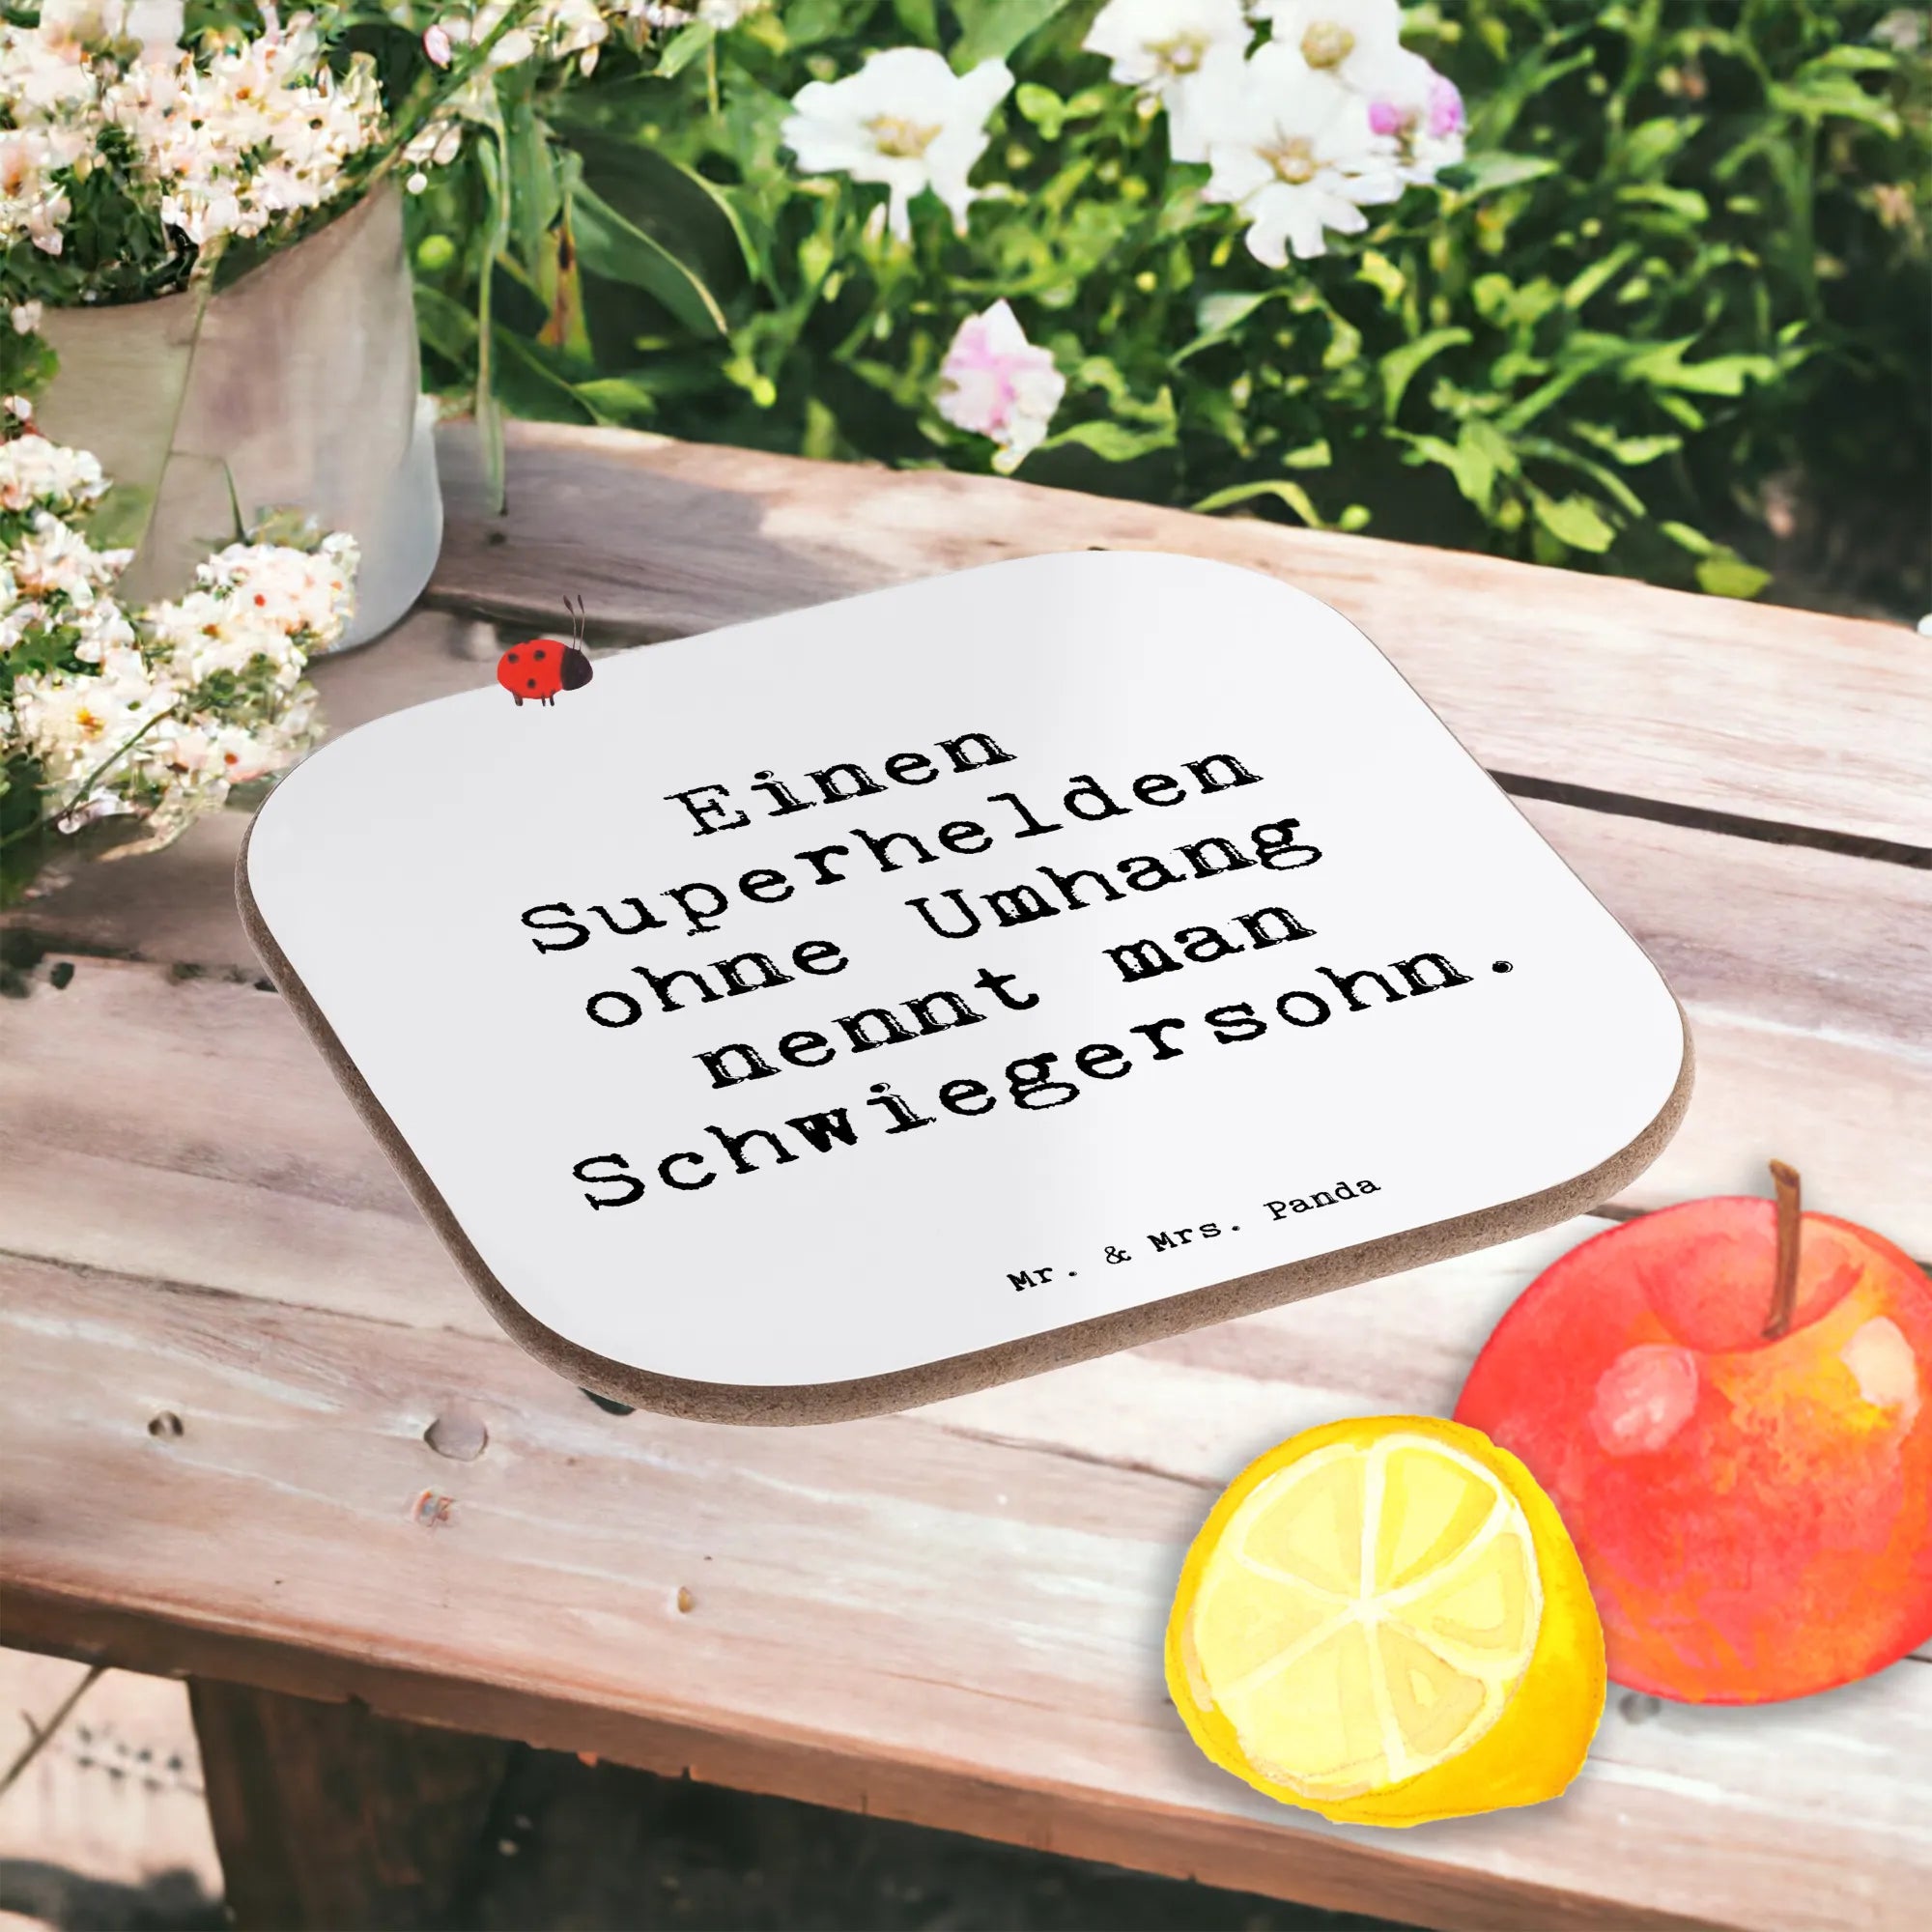 Einen
Superhelden
ohne Umhang
nennt man
Schwiegersohn.
Mr. & Mrs. Panda